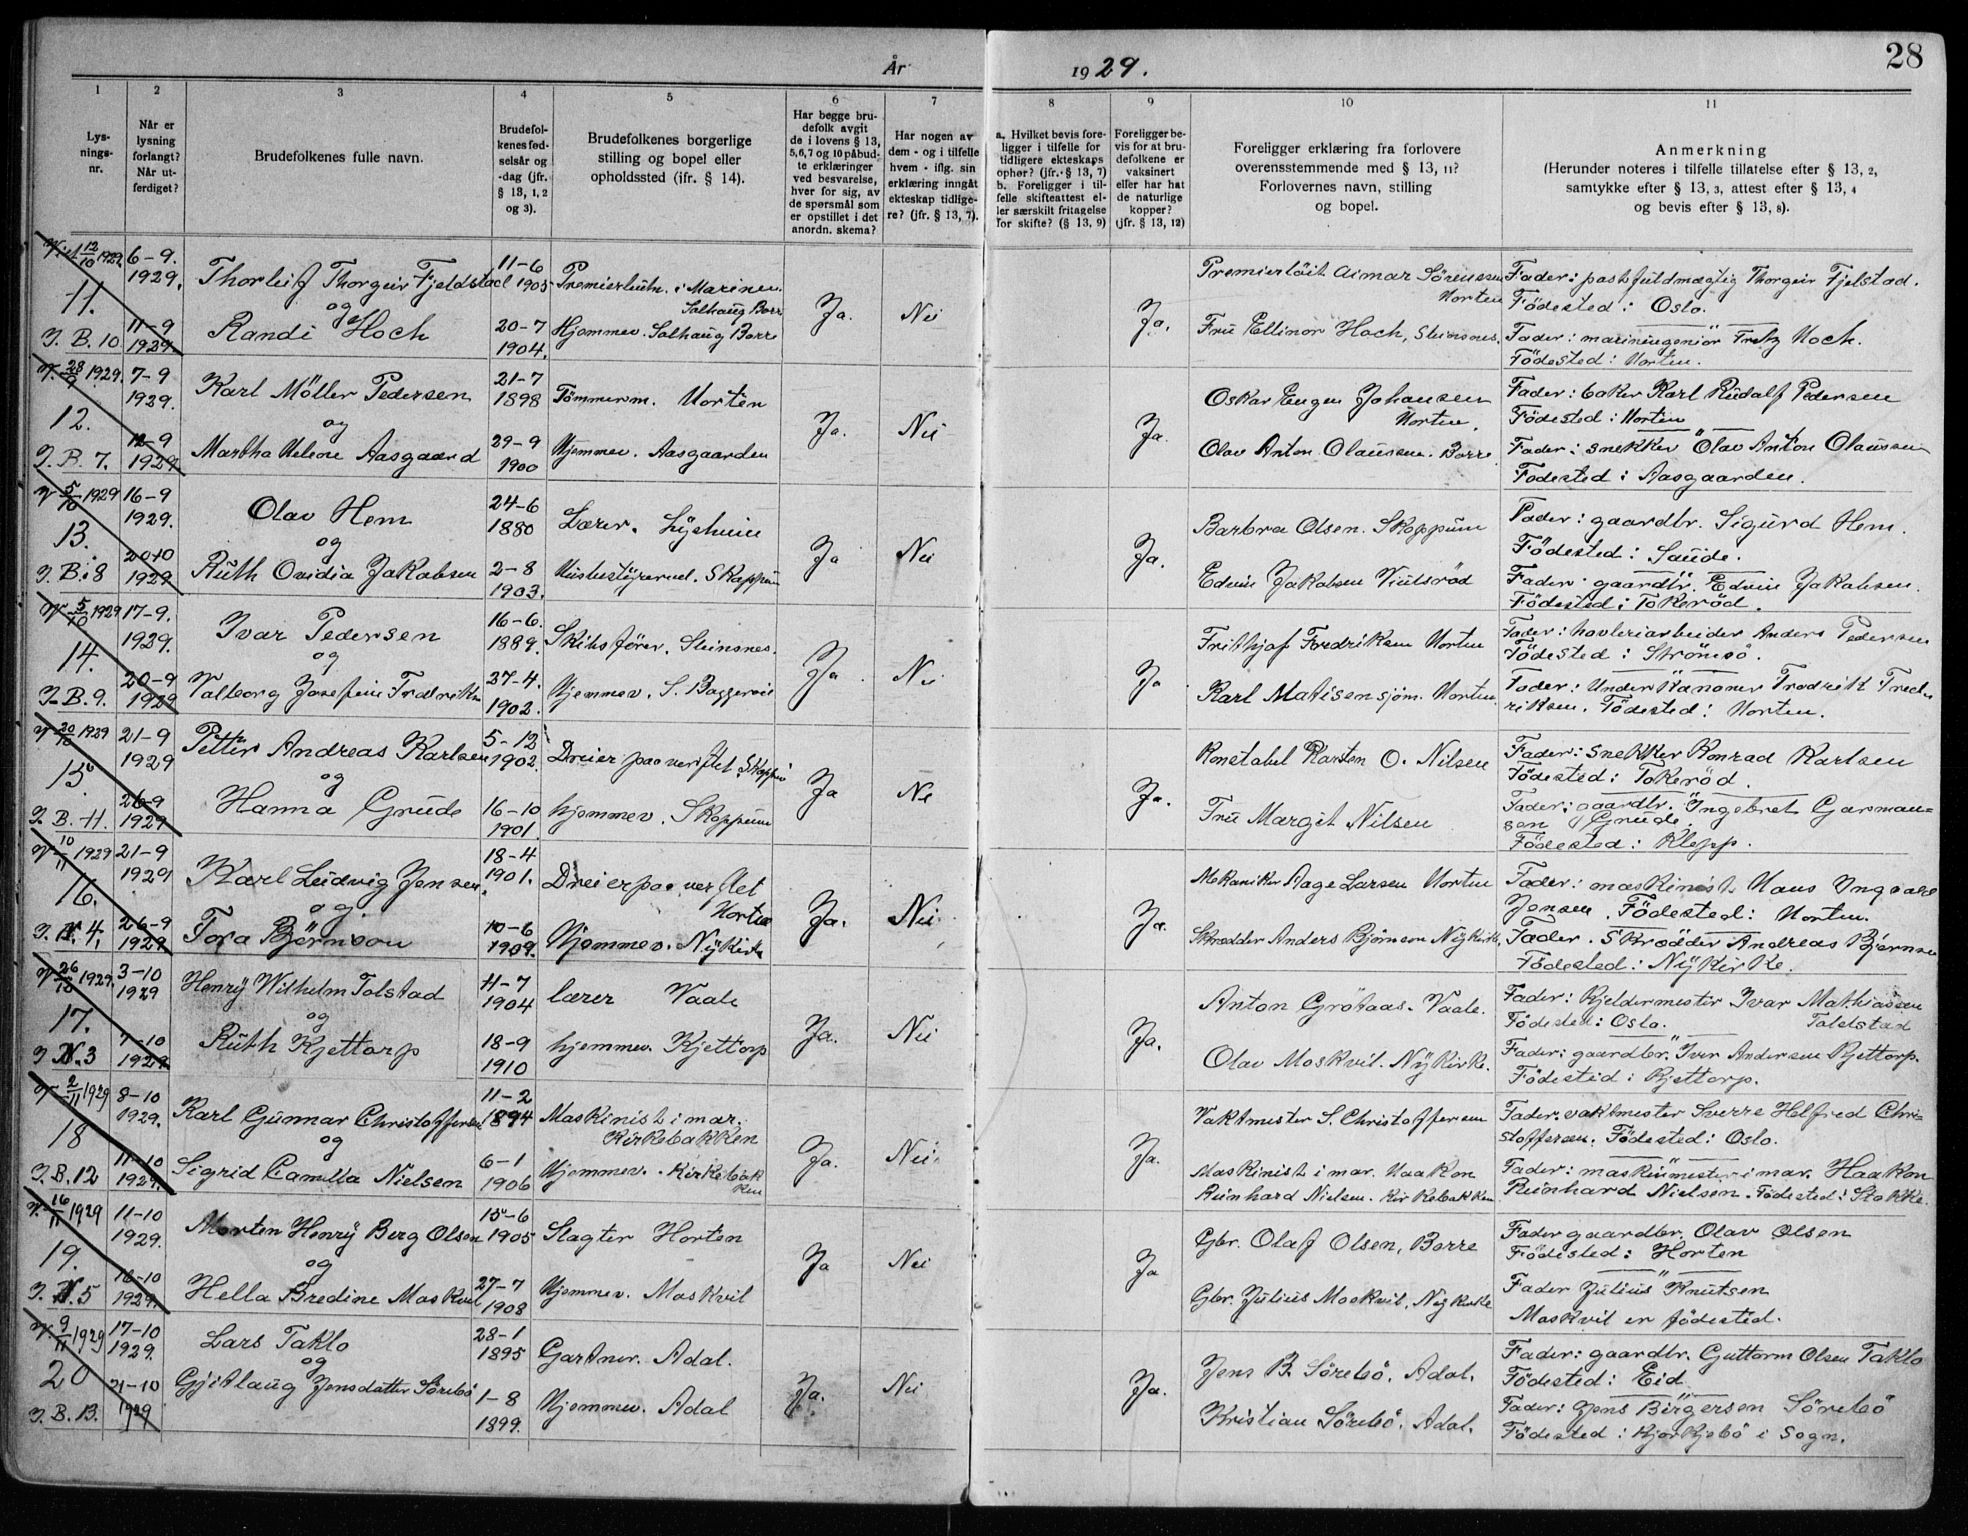 28
År 1929.
1 2 3 4 5 6 7 8 9 10 11
Lys-
nings-
nr.
Når er
lysning
forlangt?
Når ut-
ferdiget?
Brudefolkenes fulle navn.
Brudefol-
kenes fød-
selsår og
-dag (jfr.
§ 13, 1, 2
og 3).
Brudefolkenes borgerlige
stilling og bopel eller
opholdssted (ifr. § 14).
Har begge bru-
defolk avgit
de i lovens § 13,
5,6,7 og 10 påbud-
te erklæringer
ved besvarelse,
hver for sig, av
de spørsmål som
er opstillet i det
anordn. skema?
Har nogen av
dem - og i tilfelle
hvem - iflg. sin
erklæring inngått
ekteskap tidlige-
re? (jfr. § 13, 7).
a. Hvilket bevis fore-
ligger i tilfelle for
tidligere ekteskaps
ophør? (jfr. § 13, 7)
b. Foreligger i til-
felle skifteattest el-
ler særskilt fritagelse
for skifte? (§ 13, 9)
Foreligger be-
vis for at bru-
defolkene er
vaksinert
eller har hat
de naturlige
kopper?
(jfr. § 13, 12)
Foreligger erklæring fra forlovere
overensstemmende med § 13, 11?
Forlovernes navn, stilling
og bopel.
Anmerkning
(Herunder noteres i tilfelle tillatelse efter § 13, 2,
samtykke efter § 13, 3, attest efter § 13, 4
og bevis efter § 13, 8).
12/10 1929. 6-9. 1929.
11.
J. B. 10 11-9 1929
Thorleif Thorgeir Fjeldstad
og
Randi Hoch
11-6 1905
20-7 1904.
Premierløitn. i Marinen.
Solhaug Borre
Hjemmev. Solhaug Borre
Ja. Nei Ja.
Premierløit Aimar Sörensen
Horten
Fru Ellinor Hoch, Steinsnes.
Fader: postfuldmægtig Thorgeir Fjelstad.
Födested: Oslo.
Fader: mariningeniör Fritz Hoch.
Födested: Horten.
V. 28/9 1929. 7-9 1929.
12.
J. B. 7. 12-9 1929
Karl Möller Pedersen
og
Martha Helene Aasgaard
21-7 1898
29-9 1900
Tömmerm. Horten
Hjemmev. Aasgaarden
Ja. Nei Ja.
Oskar Eugen Johansen
Horten.
Olav Anton Olaussen. Borre
Fader: baker Karl Rudolf Pedersen
Födested: Horten
Fader: snekker Olav Anton Olaussen
Födested: Aasgaarden.
V 5/10 1929 16-9 1929.
13.
J. B. 8 20-10 1929
Olav Hem
og
Ruth Ovidia Jakobsen
24-6 1880
2-8 1903.
Lærer. Lysheim
Husbestyrerinde. Skoppum
Ja Nei Ja.
Barbra Olsen. Skoppum
Edvin Jakobsen Viulsröd
Fader: gaardbr. Sigurd Hem.
Födested: Saude.
Fader: gaardbr. Edvin Jakobsen.
Födested: Tokeröd.
V 5/10 1929 17-9. 1929.
14.
J. B. 9. 20-9 1929
Ivar Pedersen
og
Valborg Josefine Fredriksen
16-6. 1889.
27-4. 1902.
Skibsförer. Steinsnes.
Hjemmev. S. Baggerøie
Ja Nei Ja
Frithjof Fredriksen Horten
Karl Matisen sjöm. Horten.
Fader: havneriarbeider Anders Pedersen
Födested: Strömsö.
Fader: Underkanoner Fredrik Fred-
riksen. Födested: Horten.
V 20/10 1929 21-9 1929
15.
J. B. 11. 26-9 1929
Petter Andreas Karlsen
og
Hanna Grude
5-12 1902.
16-10 1901.
Dreier paa verftet Skoppum
hjemmev. Skoppum
Ja Nei Ja.
Konstabel Karsten O. Nilsen
Fru Margit Nilsen
Fader: snekker Konrad Karlsen
Födested: Tokeröd.
Fader: gaardbr. Ingebret Garman-
sen Grude.
Födested: Klepp.
V 10/11 1929 21-9 1929
16.
J. N. 4. 26-9 1929
Karl Ludvig Jensen.
og.
Tora Björnson
18-4 1901.
10-6 1909.
Dreier paa verftet
Horten
Hjemmev. Nykirke
Ja. Nei. Ja.
Mekaniker Aage Larsen Horten
Skrædder Anders Björnson Nykirke.
Fader: maskinist Hans Ingvald
Jensen. Födested: Horten.
Fader. Skrædder Andreas Björnsen
Födested: Nykirke.
V 26/10 1929. 3-10 1929
17.
J. N. 3 7-10 1929
Henry Wilhelm Tolstad
og
Ruth Kjettorp
4-7 1904
18-9 1910
lærer Vaale
hjemmev. Kjettorp
Ja. Nei Ja.
Anton Gröthaas. Vaale.
Olav Moskvil. Nykirke.
Fader: Kjeldermester Ivar Mathiassen
Födested: Oslo. Toldstad
Fader: gaardbr. Iver Andersen Kjettorp.
Födested: Kjettorp.
V 2/11 1929 8-10 1929.
18
J. B. 12 11-10 1929.
Karl Gunnar Christoffersen
og
Sigrid Camilla Nielsen
11-2 1894
6-1 1906
Maskinist i mar.
Kirkebakken
Hjemmev. Kirkebak
ken
Ja. Nei. Ja.
Vaktmester S. Christoffersen
Maskinist i mar. Haakon
Reinhard Nielsen. Kirkebakken
Fader. vaktmester Sverre Helfred Chri-
stoffersen. Födested: Oslo.
Fader: maskinmester i mar. Haakon
Reinhard Nielsen. Födested: Stokke.
V. 16/11 1929 11-10 1929.
19.
J. N. 5 16-10 1929.
Morten Henry Berg Olsen
og
Hella Bredine Moskvil
15-6 1905
27-7 1908
Slagter Horten
Hjemmev. Moskvil
Ja Nei Ja
Gbr. Olaf Olsen, Borre
Gbr. Julius Moskvil, Nykirke
Fader gaardbr. Olav Olsen
Födested: Horten
Fader Julius Knutsen
Moskvil er födested.
V. 9/11 1929 17-10 1929.
20
J. B. 13. 21-10 1929
Lars Taklo
og
Gjitlaug Jensdatter Sörebö
28-1 1895
1-8 1899.
Gartner. Adal.
Hjemmev. Adal
Ja. Nei Ja.
Jens B. Sörebö. Adal.
Kristian Sörebö. Adal.
Fader: gaardbr. Guttorm Olsen Taklo
Födested: Eid
Fader: Jens Birgersen Sörebö
Födested: Kjorkjebö i Sogn.